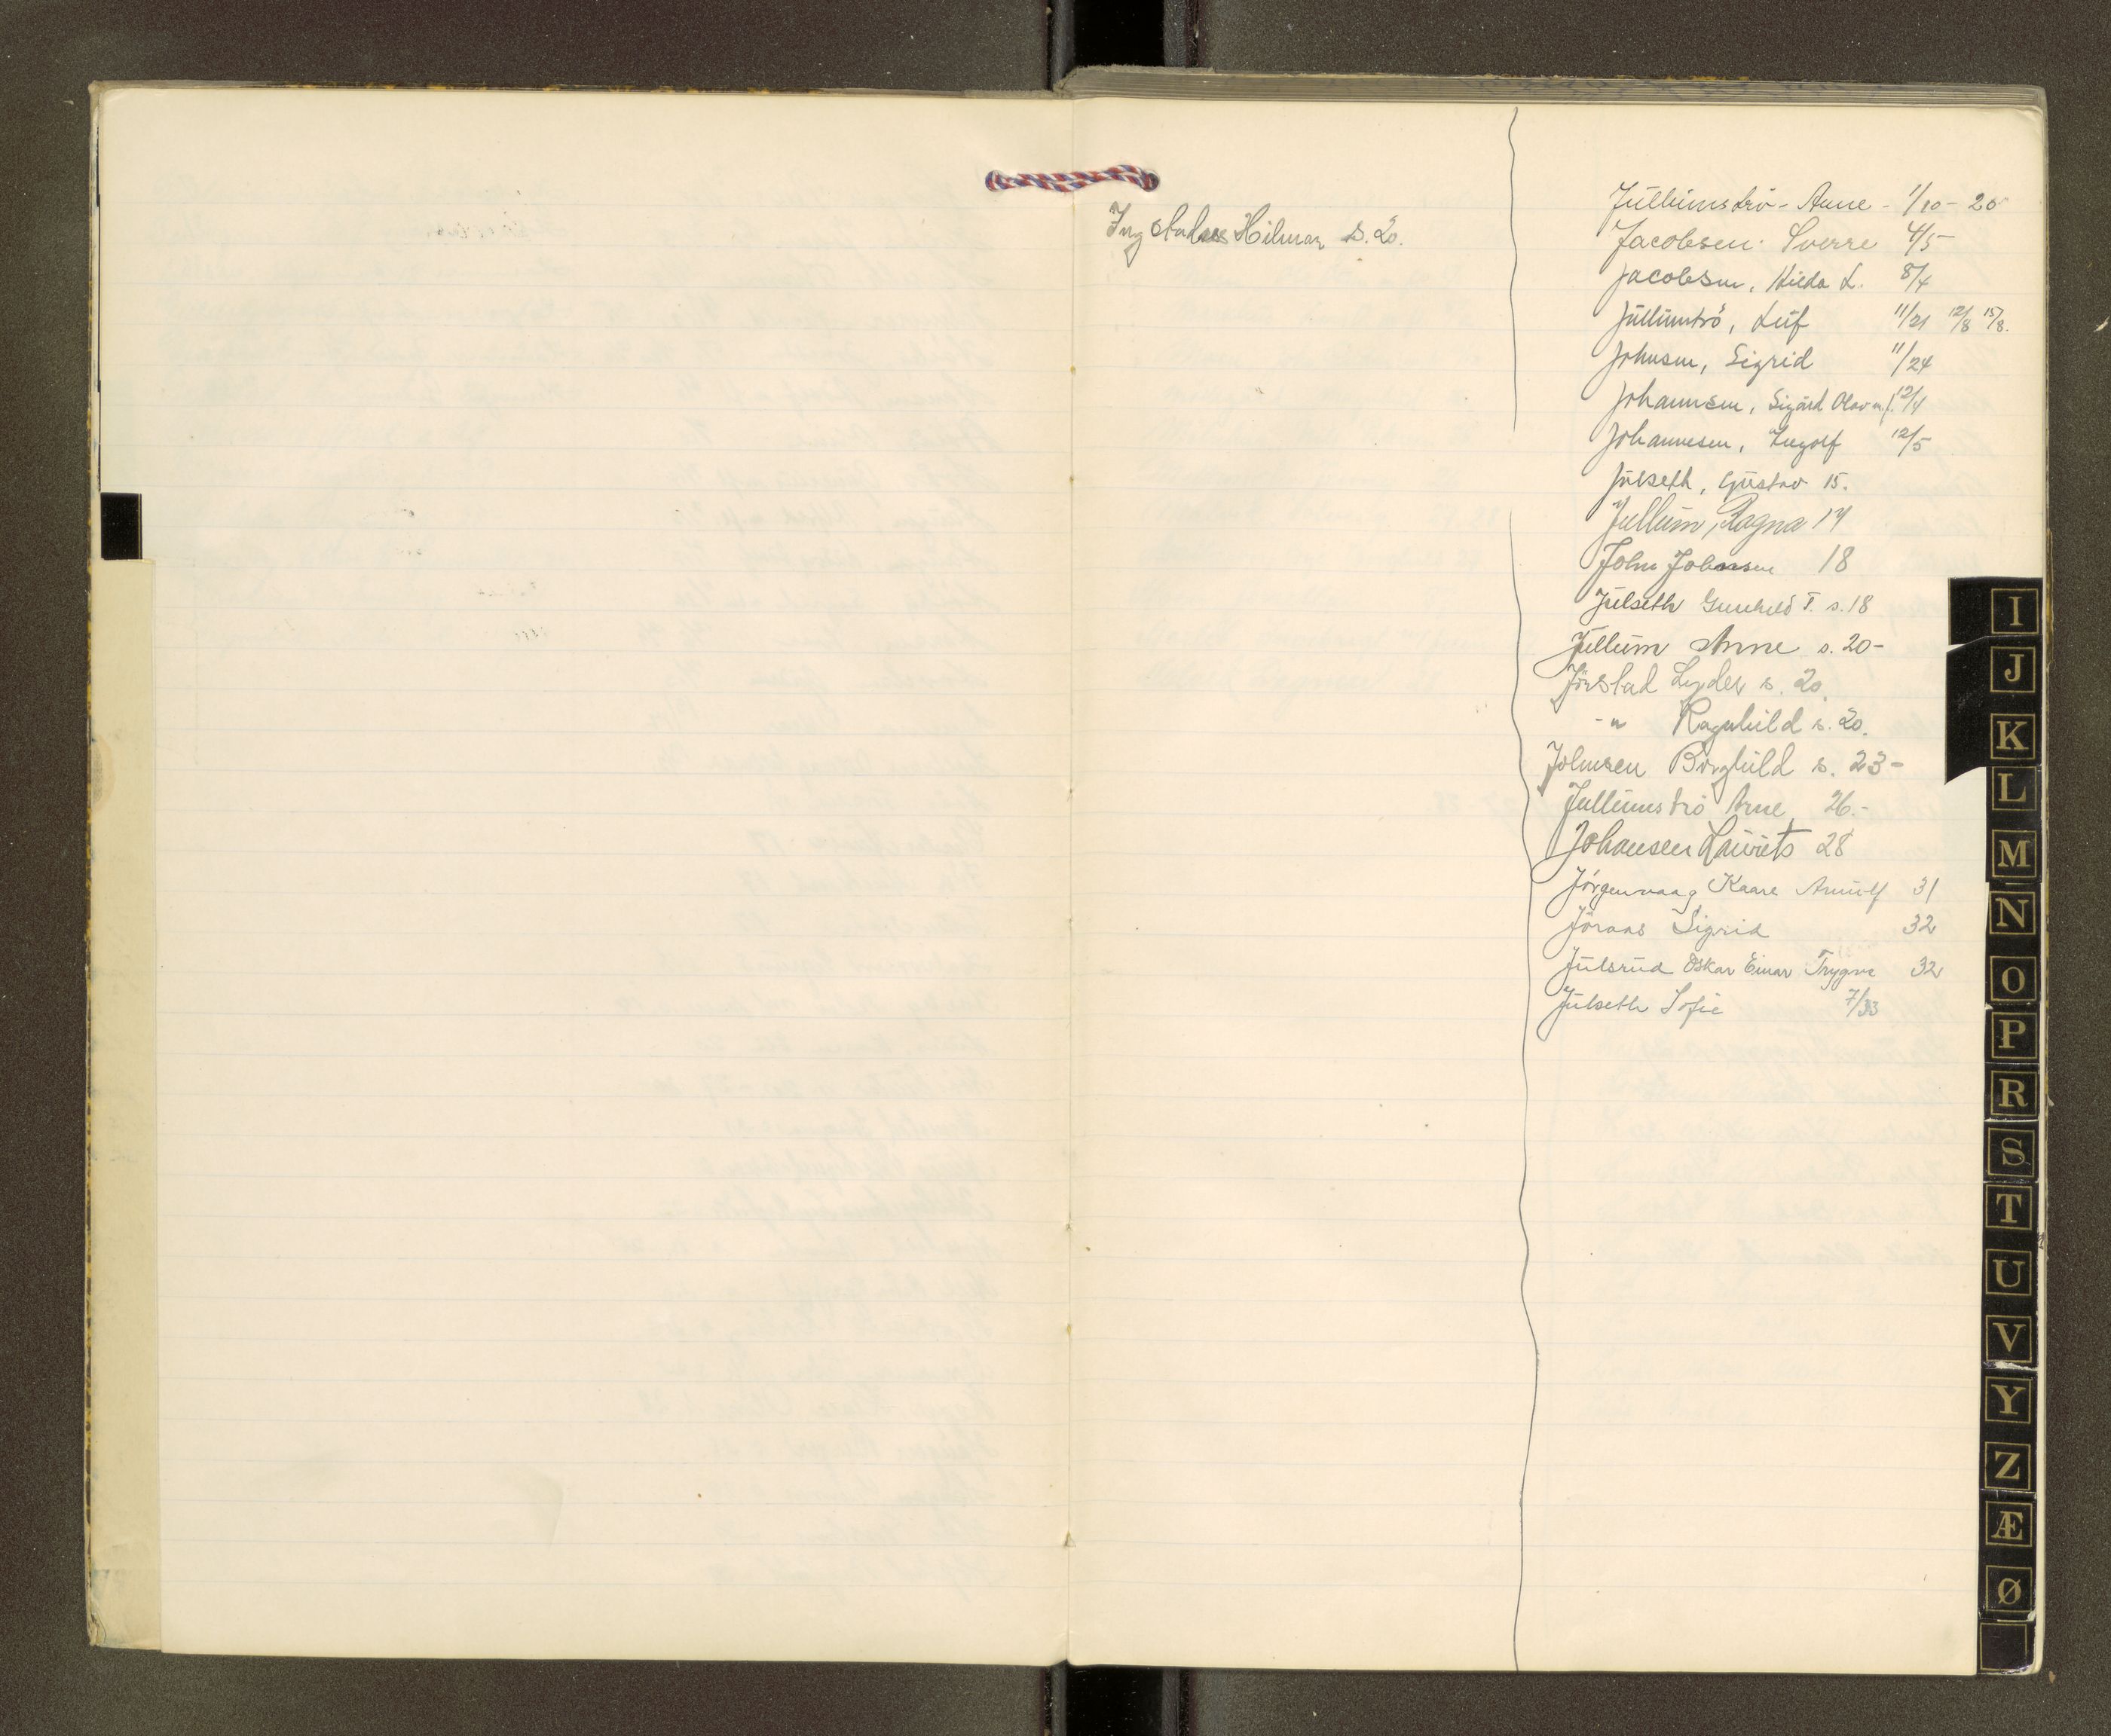 Ingstadnes Hilmar s. 20.
Jullumströ - Arne - 1/10 - 20
Jacobsen Sverre 4/5
Jacobsen, Hilda L. 8/4
Jullumströ, Leif 11/21 12/8 15/8.
Johnsen, Sigrid 11/24
Johannsen, Sigurd Olav 12/4
Johannesen, Ingolf 12/5
Julseth, Gustav 15.
Jullum, Ragna 14
John Johnsen 18
Julseth Gunhild T. s. 18
Jullum Anne s. 20 -
Jörstad Lyder s. 20.
- " Ragnhild s. 20.
Johnsen Borghild s. 23 -
Jullumströ Arne 26. -
Johansen Laurits 28
Jörgenvaag Kaare Arnulf 31
Jöraas Sigrid 32
Julsrud Oskar Einar Trygve 32
Julseth Sofie 7/33
I
J
K
L
M
N
O
P
R
S
T
U
V
Y
Z
Æ
Ø